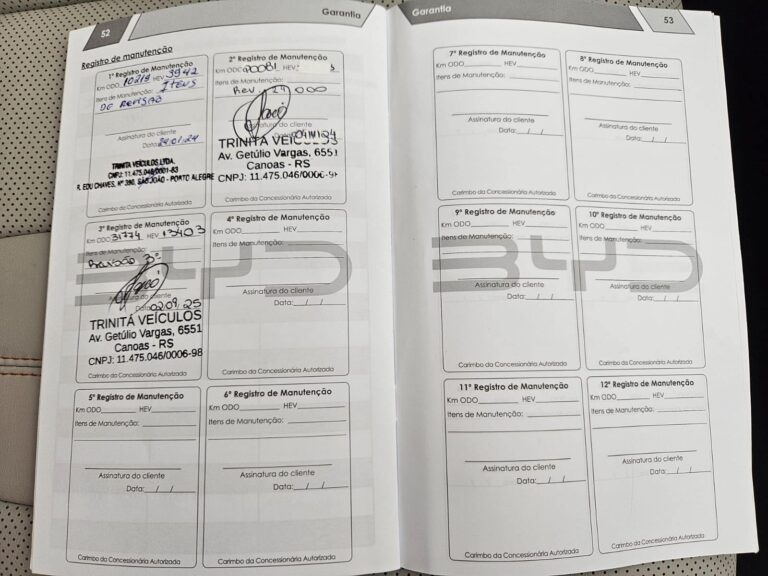 52
Garantia
Registro de manutenção
1º Registro de Manutenção
Km ODO 10219 HEV 3942
Itens de Manutenção: ITENS
DE REVISÃO
Assinatura do cliente
Data: 24/01/24
TRINITÁ VEÍCULOS LTDA.
CNPJ: 11.475.046/0001-83
R. EDU CHAVES, Nº 380, SÃO JOÃO - PORTO ALEGRE
Carimbo da Concessionária Autorizada
2º Registro de Manutenção
Km ODO HEV
Itens de Manutenção:
Rev 20.000
Assinatura do cliente
Data:
TRINITÁ VEÍCULOS
Av. Getúlio Vargas, 6551
Canoas - RS
CNPJ: 11.475.046/0006-98
Carimbo da Concessionária Autorizada
3º Registro de Manutenção
Km ODO 31774 HEV 13403
Itens de Manutenção:
Revisão 3º
Assinatura do cliente
Data: 02/09/25
TRINITÁ VEÍCULOS
Av. Getúlio Vargas, 6551
Canoas - RS
CNPJ: 11.475.046/0006-98
Carimbo da Concessionária Autorizada
4º Registro de Manutenção
Km ODO HEV
Itens de Manutenção:
Assinatura do cliente
Data: / /
Carimbo da Concessionária Autorizada
BYD
5º Registro de Manutenção
Km ODO HEV
Itens de Manutenção:
Assinatura do cliente
Data: / /
Carimbo da Concessionária Autorizada
6º Registro de Manutenção
Km ODO HEV
Itens de Manutenção:
Assinatura do cliente
Data: / /
Carimbo da Concessionária Autorizada
Garantia
53
7º Registro de Manutenção
Km ODO HEV
Itens de Manutenção:
Assinatura do cliente
Data: / /
Carimbo da Concessionária Autorizada
8º Registro de Manutenção
Km ODO HEV
Itens de Manutenção:
Assinatura do cliente
Data: / /
Carimbo da Concessionária Autorizada
9º Registro de Manutenção
Km ODO HEV
Itens de Manutenção:
Assinatura do cliente
Data: / /
Carimbo da Concessionária Autorizada
10º Registro de Manutenção
Km ODO HEV
Itens de Manutenção:
Assinatura do cliente
Data: / /
Carimbo da Concessionária Autorizada
BYD
11º Registro de Manutenção
Km ODO HEV
Itens de Manutenção:
Assinatura do cliente
Data: / /
Carimbo da Concessionária Autorizada
12º Registro de Manutenção
Km ODO HEV
Itens de Manutenção:
Assinatura do cliente
Data: / /
Carimbo da Concessionária Autorizada